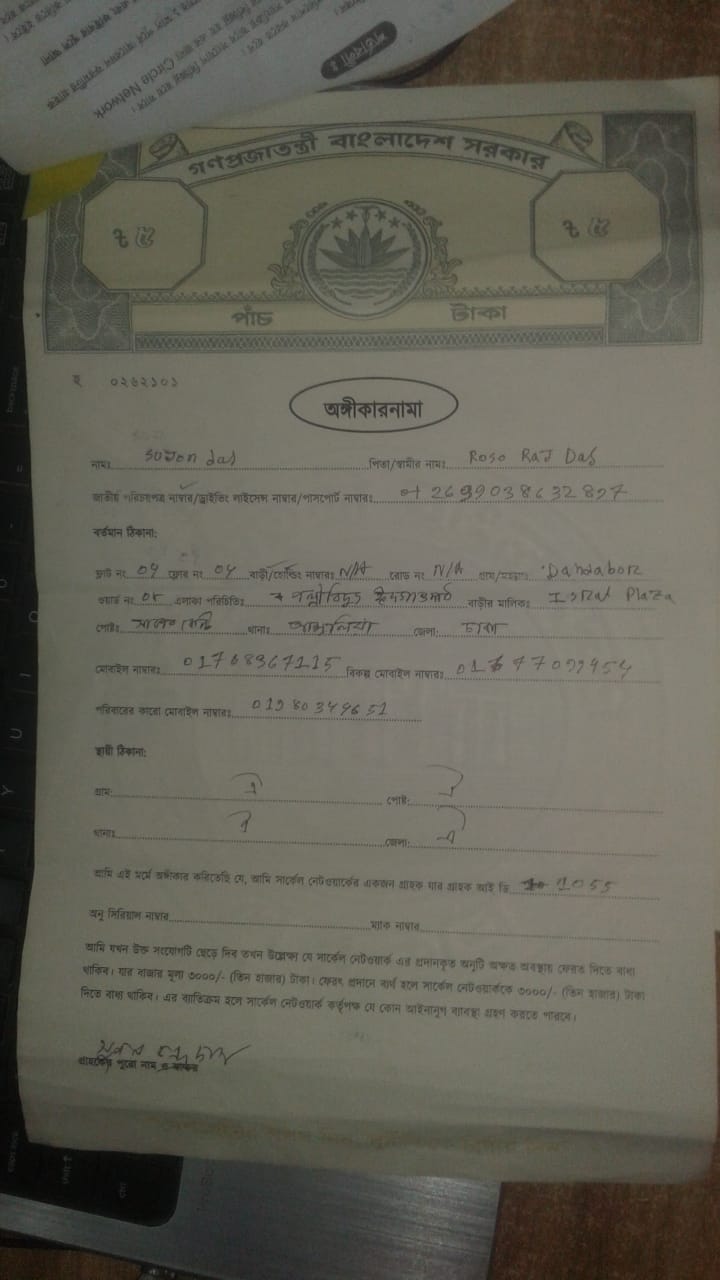 শর্তাবলী ঃ
Circle Network
গণপ্রজাতন্ত্রী বাংলাদেশ সরকার
৳ ৫ ৳ ৫
পাঁচ টাকা
হ ০২৬২১০১
অঙ্গীকারনামা
নামঃ sujon das পিতা/স্বামীর নামঃ Roso Raj Das
জাতীয় পরিচয়পত্র নাম্বার/ড্রাইভিং লাইসেন্স নাম্বার/পাসপোর্ট নাম্বারঃ 2699038632897
বর্তমান ঠিকানা:
ফ্লাট নং 04 ফ্লোর নং 04 বাড়ী/হোল্ডিং নাম্বারঃ N/A রোড নং N/A গ্রাম/মহল্লাঃ Dandabor
ওয়ার্ড নং 05 এলাকা পরিচিতিঃ পল্লীবিদ্যুৎ ঈদগাহমাঠ বাড়ীর মালিকঃ Israt Plaza
পোষ্টঃ থানাঃ আশুলিয়া জেলা: ঢাকা
মোবাইল নাম্বারঃ 01768967115 বিকল্প মোবাইল নাম্বারঃ
পরিবারের কারো মোবাইল নাম্বারঃ 01980349651
স্থায়ী ঠিকানা:
গ্রাম: ঐ পোষ্ট: ঐ
থানাঃ ঐ জেলা: ঐ
আমি এই মর্মে অঙ্গীকার করিতেছি যে, আমি সার্কেল নেটওয়ার্কের একজন গ্রাহক যার গ্রাহক আই ডি 1055
অনু সিরিয়াল নাম্বার ম্যাক নাম্বার
আমি যখন উক্ত সংযোগটি ছেড়ে দিব তখন উল্লেক্ষ্য যে সার্কেল নেটওয়ার্ক এর প্রদানকৃত অনুটি অক্ষত অবস্থায় ফেরত দিতে বাধ্য
থাকিব। যার বাজার মূল্য ৩০০০/- (তিন হাজার) টাকা। ফেরৎ প্রদানে ব্যর্থ হলে সার্কেল নেটওয়ার্ককে ৩০০০/- (তিন হাজার) টাকা
দিতে বাধ্য থাকিব। এর ব্যাতিক্রম হলে সার্কেল নেটওয়ার্ক কর্তৃপক্ষ যে কোন আইনানুগ ব্যাবস্থা গ্রহণ করতে পারবে।
সুজন চন্দ্র দাস
গ্রাহকের পুরো নাম ও স্বাক্ষর